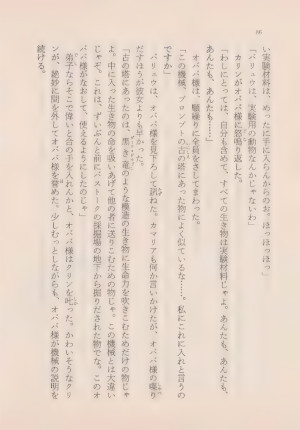 96
い実験材料は、めったに手に入らんからのぉ。ほっほっほっ」
「バリュウは、実験用の動物なんかじゃないわ」
カリンがオババ様に怒鳴り返した。
「わしにとっては、自分も含めて、すべての生き物は実験材料じゃよ。あんたも、あんたも、
あんたも、あんたも……」
オババ様は、順繰りに全員をさしてまわった。
「この機械、プロンプトの古の塔にあった物によく似ているな……。私にこれに入れと言うの
ですか」
バリュウは、オババ様を見下ろして尋ねた。カマリアも何か言いかけたが、オババ様の喋り
だすほうが彼女よりも早かった。
「古の塔にあったのは、黒き竜のような模造の生き物に生命力を吹きこむためだけの物じゃ
よ。中に入った生き物の命を吸いあげて他の者に送りこむための物じゃ。この機械とは大違い
じゃぞ。これは、ずいぶんと前にバストークの採掘場の地下から掘りだされた物でな。このオ
ババ様がなおして、使えるようにしたのじゃ」
弟子ならそこで偉いと合の手を入れんかと、オババ様はクリンを叱った。かわいそうなクリ
ンが、絶妙に間を外してオババ様を誉めた。少しむっとしながら、オババ様が機械の説明を
続ける。